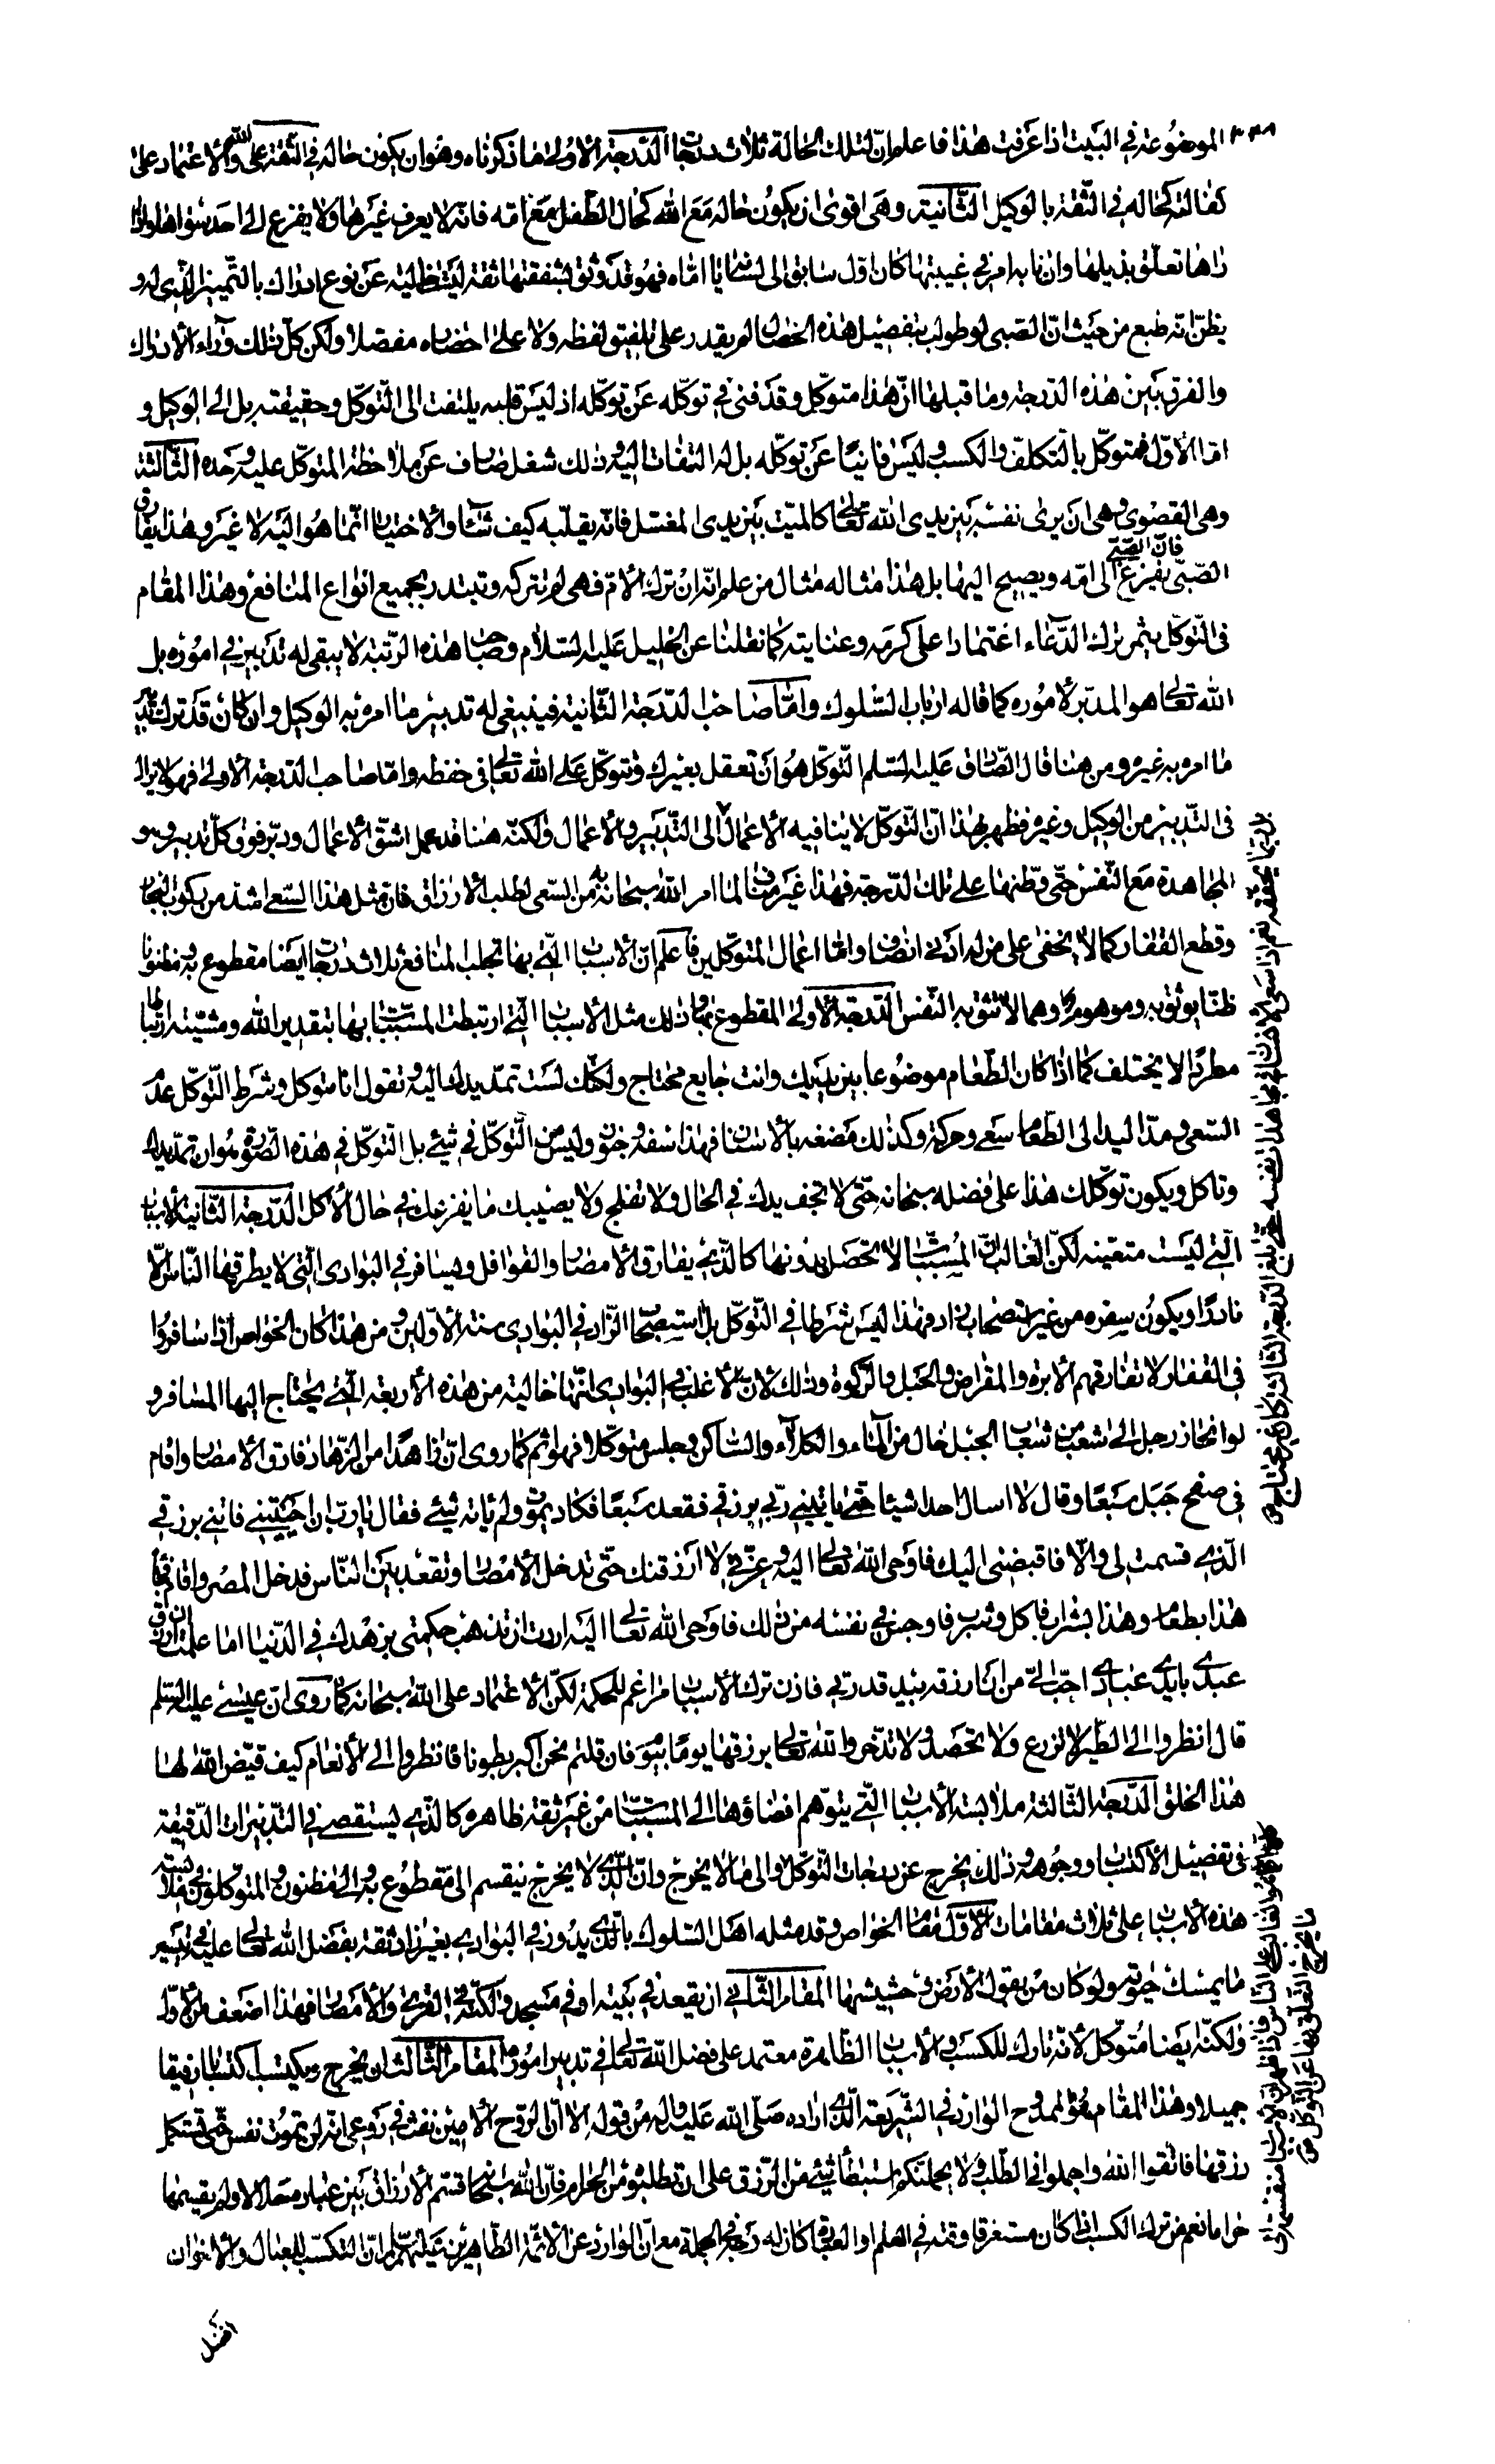 ٣٣٨ الموضوعة في البيت اذا عرفت هذا فاعلم ان لتلك الحالة ثلاث درجات الدرجة الأولى ما ذكرناه وهو ان يكون حاله في الثقة على الله والاعتماد على
كفالته كحاله في الثقة بالوكيل الثانية وهى اقوى ان يكون حاله مع الله كحال الطفل مع امه فانه لا يعرف غيرها ولا يفزع الى احد سواها واذا
راها تعلق بذيلها وان نابه امر في غيبتها كان اول سابق الى لسانه يا اماه فهو قد وثق بشفقتها ثقة ليست خالية عن نوع ادراك بالتميز الذى له و
يظن انه طبع من حيث ان الصبى لو طولب بتفصيل هذه الخصال لم يقدر على تلفيق لفظه ولا على احضاره مفصلا ولكن كل ذلك وراء الادراك
والفرق بين هذه الدرجة وما قبلها ان هذا متوكل وقد فنى في توكله عن توكله اذ ليس قلبه يلتفت الى التوكل وحقيقته بل الى الوكيل و
اما الأول فمتوكل بالتكلف والكسب وليس فانيا عن توكله بل له التفات اليه وذلك شغل صارف عن ملاحظة المتوكل عليه وحده الثالثة
وهى القصوى وهى ان يرى نفسه بين يدى الله تعالى كالميت بين يدى المغسل فانه يقلبه كيف شاء والاختيار انما هو اليه لا غير وهذا يفارق
الصبى فان الصبى يفزع الى امه ويصيح اليها بل هذا مثاله مثال من علم انه ان ترك الأم فهى لم تتركه وتبتدر بجميع انواع المنافع وهذا المقام
فى التوكل يثمر ترك الدعاء اعتمادا على كرمه وعنايته كما نقلنا عن الخليل عليه السلام وصاحب هذه الرتبة لا يبقى له تدبير في اموره بل
الله تعالى هو المدبر لأموره كما قاله ارباب السلوك واما صاحب الدرجة الثانية فينبغي له تدبير ما امره به الوكيل وان كان قد ترك تدبير
ما امره به غيره ومن هنا قال الصادق عليه السلم التوكل هو ان تعقل بعيرك وتتوكل على الله تعالى في حفظه واما صاحب الدرجة الأولى فهو لا يزال
فى التدبير من الوكيل وغيره فظهر بهذا ان التوكل لا ينافيه الأعمال الى التدبير والأعمال ولكنه هنا قد عمل اشق الأعمال ودبر فوق كل تدبير وهو
المجاهدة مع النفس حتى وطنها على تلك الدرجة فهذا غير مناف لما امر الله سبحانه به من السعى لطلب الأرزاق فان مثل هذا السعى اشد من ركوب البحار
وقطع القفار كما لا يخفى على من له ادنى انصاف واما اعمال المتوكلين فاعلم ان الأسباب التي بها تجلب المنافع ثلاث درجات ايضا مقطوع به ومظنون
ظنا يوثق به وموهوم وهما لا تثق به النفس الدرجة الأولى المقطوع بها وذلك مثل الأسباب التي ارتبطت المسببات بها بتقدير الله ومشيته ارتباطا
مطردا لا يختلف كما اذا كان الطعام موضوعا بين يديك وانت جايع محتاج ولكنك لست تمد يدك اليه وتقول انا متوكل وشرط التوكل عدم
السعى ومد اليد الى الطعام سعى وحركة وكذلك مضغه بالاسنان فهذا سفه وجنون وليس من التوكل في شيء بل التوكل في هذه الصورة هو ان تمد يدك
وتاكل ويكون توكلك هذا على فضله سبحانه حتى لا تجف يدك في الحال ولا تفلج ولا يصيبك ما يفزعك في حال الأكل الدرجة الثانية الأسباب
التي ليست متعينه لكن الغالب ان المسببات لا تحصل بدونها كالذى يفارق الأمصار والقوافل ويسافر في البوادى التي لا يطرقها الناس الا
نادرا ويكون سفره من غير استصحاب زاد فهذا ليس شرطا في التوكل بل استصحاب الزاد في البوادى سنة الأولين ومن هذا كان الخواص اذا سافروا
في القفار لا تفارقهم الأبرة والمقراض والحبل والركوة وذلك لأن الأغلب في البوادى انها خالية من هذه الأربعة التي يحتاج اليها المسافر و
لو انحاز رجل الى شعب من شعاب الجبل خال من الماء والكلاء والساكن وجلس متوكلا فهو اثم كما روى ان زاهدا من الزهاد فارق الأمصار واقام
في صفح جبل سبعا وقال لا اسال احدا شيئا حتى ياتيني ربي برزقي فقعد سبعا فكاد يموت ولم ياته شيء فقال يا رب ان احييتني فاتني برزقي
الذي قسمت لى والا فاقبضنى اليك فاوحى الله تعالى اليه وعزتى لا ارزقنك حتى تدخل الأمصار وتقعد بين الناس فدخل المصر واقام فجاء
هذا بطعام وهذا بشراب فاكل وشرب فاوجس في نفسه من ذلك فاوحى الله تعالى اليه اردت ان تذهب حكمتى بزهدك في الدنيا اما علمت ان ارزق
عبدى بايدى عبادى احب الى من ان ارزقه بيد قدرتى فاذن ترك الأسباب مراغم للحكمة لكن الاعتماد على الله سبحانه كما روى ان عيسى عليه السلم
قال انظروا الى الطير لا تزرع ولا تحصد ولا تدخر والله تعالى يرزقها يوما بيوم فان قلتم نحن اكبر بطونا فانظروا الى الأنعام كيف قيض الله لها
هذا الخلق الدرجة الثالثة ملابسة الأسباب التي يتوهم افضاؤها الى المسببات من غير ثقة ظاهره كالذى يستقصى في التدبيرات الدقيقة
في تفصيل الأكتساب ووجوهه وذلك يخرج عن درجات التوكل والى ما لا يخرج وان الذى لا يخرج ينقسم الى مقطوع به والى مظنون والمتوكلون في ملابسة
هذه الأسباب على ثلاث مقامات الأول مقام الخواص وقد مثله اهل السلوك بالذى يدور في البوادى بغير زاد ثقة بفضل الله تعالى عليه في تيسير
ما يمسك حيوته ولو كان من بقول الأرض وحشيشها المقام الثانى ان يقعد في بيته او في مسجد ولكنه في القرى والأمصار فهذا اضعف من الأول
ولكنه ايضا متوكل لأنه تارك للكسب والأسباب الظاهرة معتمد على فضل الله تعالى في تدبير اموره المقام الثالث ان يخرج ويكتسب اكتسابا رفيقا
جميلا وهذا المقام هو الممدوح الوارد في الشريعة الذى اراده صلى الله عليه واله من قوله الا ان الروح الأمين نفث في روعى انه لن تموت نفس حتى تستكمل
رزقها فاتقوا الله واجملوا في الطلب ولا يحملنكم استبطاء شيء من الرزق على ان تطلبوه من الحرام فان الله سبحانه قسم الأرزاق بين عباده حلالا ولم يقسمها
حراما نعم من ترك الكسب اذا كان مستغرقا وقته في العلم او العبادة كان له وجه في الجملة مع ان الوارد عن الأئمة الطاهرين عليهم السلام ان التكسب للعيال والأخوان
افضل
نعم اذا سعى الانسان مجاهدا نفسه حتى بلغ الدرجة الثالثة كان غير محتاج